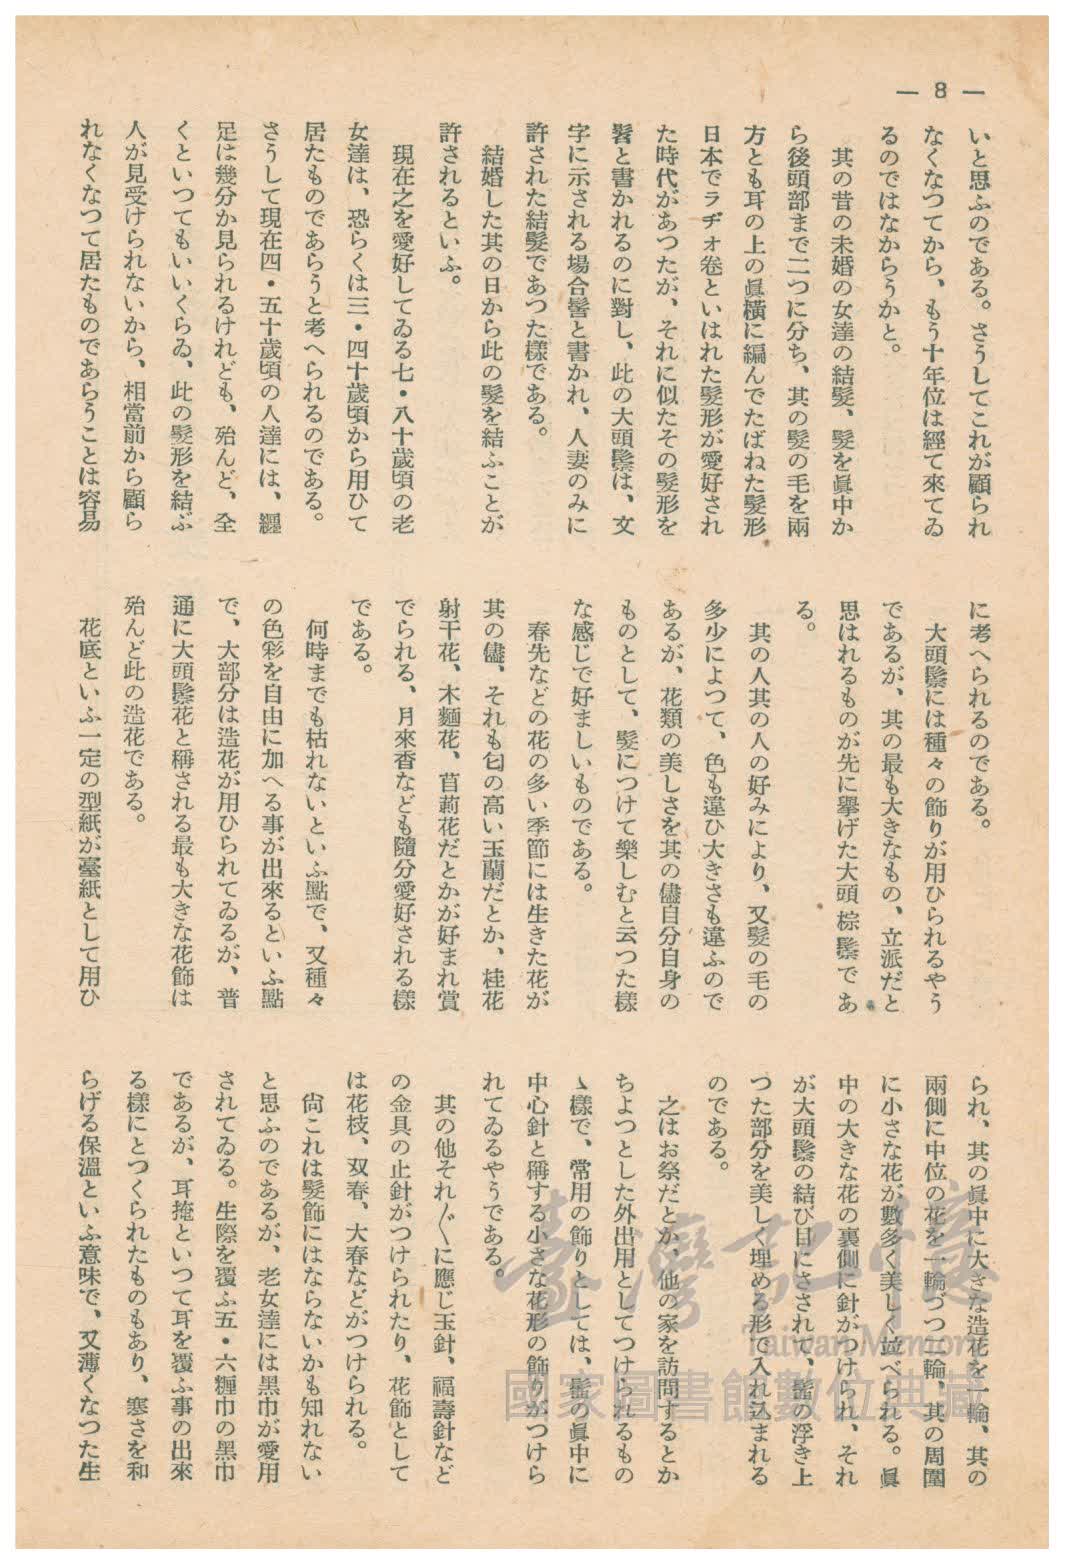 — 8 —
いと思ふのである。さうしてこれが顧られ
なくなつてから、もう十年位は經て來てゐ
るのではなからうかと。
其の昔の未婚の女達の結髮、髮を眞中か
ら後頭部まで二つに分ち、其の髮の毛を兩
方とも耳の上の眞橫に編んでたばねた髮形
日本でラヂオ卷といはれた髮形が愛好され
た時代があつたが、それに似たその髮形を
髫と書かれるのに對し、此の大頭鬃は、文
字に示される場合髻と書かれ、人妻のみに
許された結髮であつた樣である。
結婚した其の日から此の髮を結ふことが
許されるといふ。
現在之を愛好してゐる七・八十歲頃の老
女達は、恐らくは三・四十歲頃から用ひて
居たものであらうと考へられるのである。
さうして現在四・五十歲頃の人達には、纒
足は幾分か見られるけれども、殆んど、全
くといつてもいいくらゐ、此の髮形を結ぶ
人が見受けられないから、相當前から顧ら
れなくなつて居たものであらうことは容易
に考へられるのである。
大頭鬃には種々の飾りが用ひられるやう
であるが、其の最も大きなもの、立派だと
思はれるものが先に擧げた大頭棕鬃であ
る。
其の人其の人の好みにより、又髮の毛の
多少によつて、色も違ひ大きさも違ふので
あるが、花類の美しさを其の儘自分自身の
ものとして、髮につけて樂しむと云つた樣
な感じで好ましいものである。
春先などの花の多い季節には生きた花が
其の儘、それも匂の高い玉蘭だとか、桂花
射干花、木麵花、苜莉花だとかが好まれ賞
でられる、月來香なども隨分愛好される樣
である。
何時までも枯れないといふ點で、又種々
の色彩を自由に加へる事が出來るといふ點
で、大部分は造花が用ひられてゐるが、普
通に大頭鬃花と稱される最も大きな花飾は
殆んど此の造花である。
花底といふ一定の型紙が臺紙として用ひ
られ、其の眞中に大きな造花を一輪、其の
兩側に中位の花を一輪づつ二輪、其の周圍
に小さな花が數多く美しく並べられる。眞
中の大きな花の裏側に針がつけられ、それ
が大頭鬃の結び目にさされて、髷の浮き上
つた部分を美しく埋める形で入れ込まれる
のである。
之はお祭だとか、他の家を訪問するとか
ちよつとした外出用としてつけられるもの
ゝ樣で、常用の飾りとしては、髷の眞中に
中心針と稱する小さな花形の飾りがつけら
れてゐるやうである。
其の他それ〲に應じ玉針、福壽針など
の金具の止針がつけられたり、花飾として
は花枝、双春、大春などがつけられる。
尙これは髮飾にはならないかも知れない
と思ふのであるが、老女達には黑巾が愛用
されてゐる。生際を覆ふ五・六糎巾の黑巾
であるが、耳掩といつて耳を覆ふ事の出來
る樣にとつくられたものもあり、寒さを和
らげる保溫といふ意味で、又薄くなつた生
臺灣記憶
Taiwan Memory
國家圖書館數位典藏